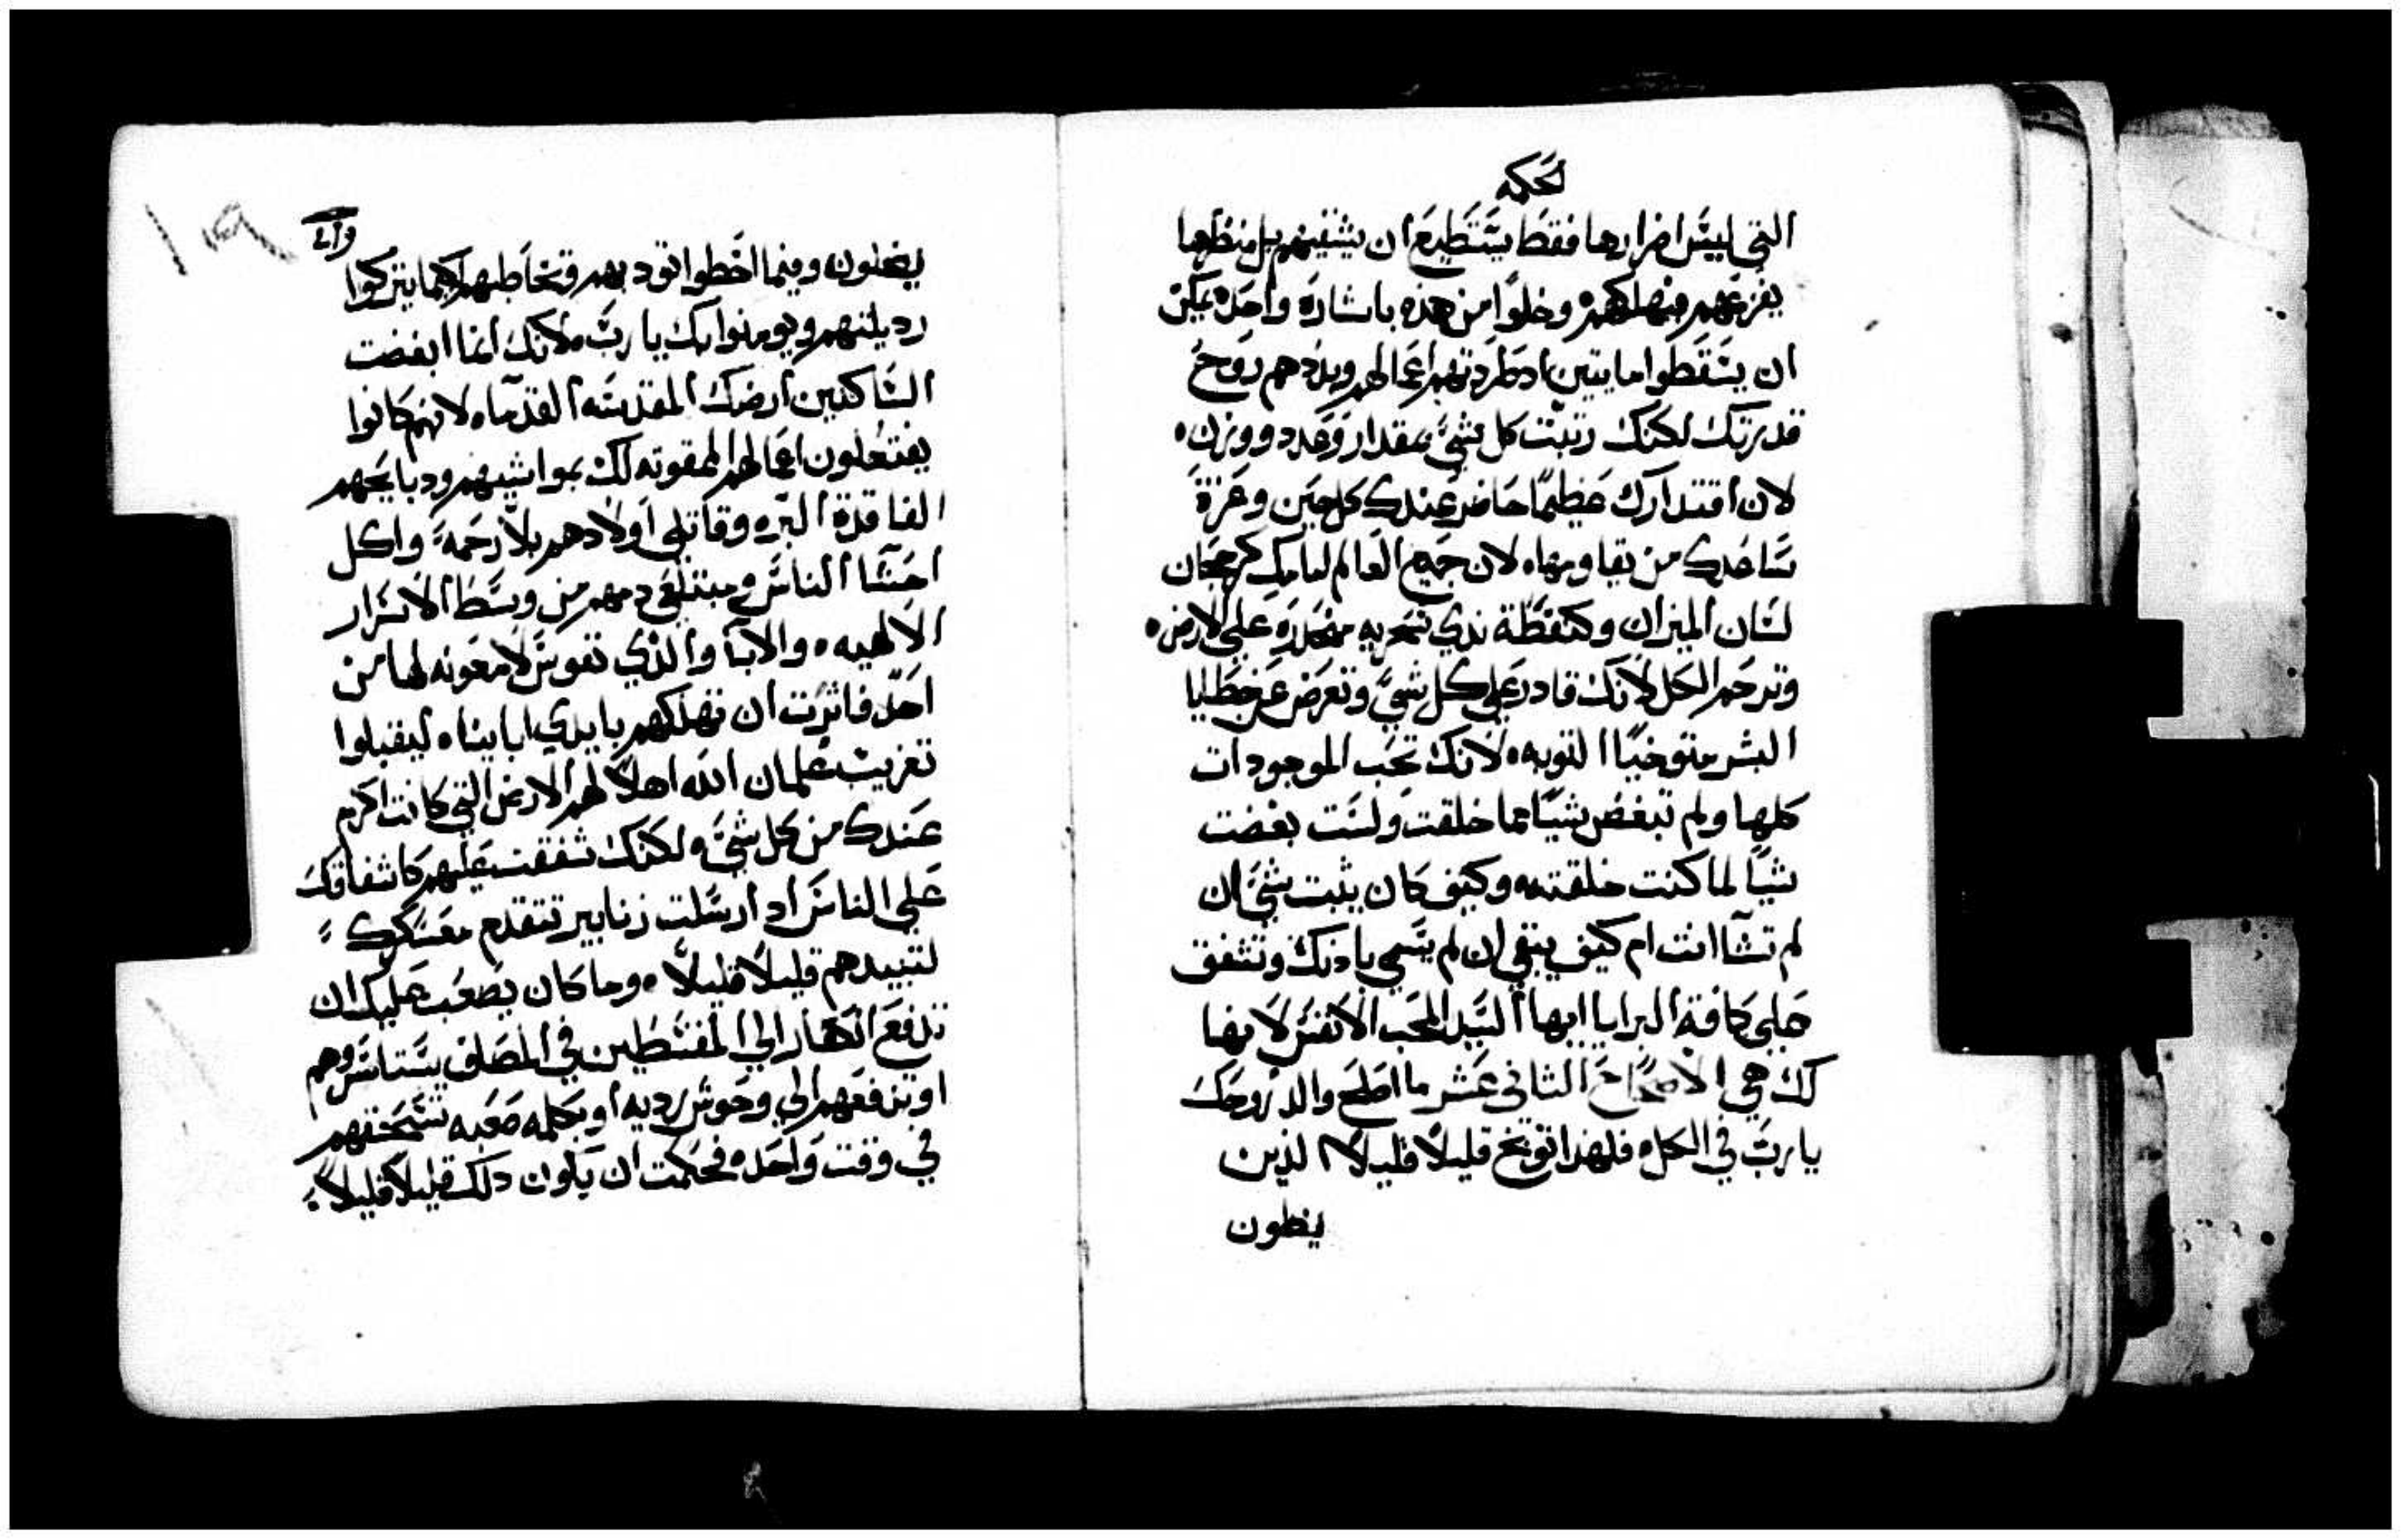 لحكمه
التي ليس اضرارها فقط يستطيع ان يشفيهم بل منظرها
يفزعهم فيهلكهم وخلوًا من هذه باشارة واحده يمكن
ان يسقطوا مايتين اد طردتهم اعمالهم وبددهم روح
قدرتك لكنك رتبت كل شي بمقدار وعدد ووزن
لان اقتدارك عظيمًا حاضر عندك كل حين وعزة
ساعدك من يقاومها لان جميع العالم امامك كرجحان
لسان الميزان وكنقطة ندي سحريه منحدره علي الارض
وترحم الكل لانك قادر علي كل شي وتعرض عن خطايا
البشر متوخيًا التوبه لانك تحب الموجودات
كلها ولم تبغض شيًا مما خلقت ولست بغضت
شيًا لما كنت خلقته وكيف كان يثبت شي ان
لم تشآ انت ام كيف يبقي ان لم يسمي بادنك وتشفق
علي كافة البرايا ايها السيد المحب الانفس لانها
لك هي الاصحاح الثاني عشر ما اصلح والد روحك
يا رب في الكل فلهذا توبخ قليلًا قليلًا الذين
يخطون
يخطون وفيما اخطوا تودبهم وتخاطبهم لكيما يتركوا
رديلتهم ويومنوا بك يا رب لانك انما ابغضت
الساكنين ارضك المقدسه القدمآ لانهم كانوا
يفتعلون اعمالهم الممقوته لك بمواشيهم ودبايحهم
الفاقدة البره وقاتلي اولادهم بلا رحمه واكل
احشا الناس ومبتلعي دمهم من وسط الاسرار
الالهيه والابآ والذي نفوس لا معونه لها من
احد فاثرت ان تهلكهم بايدي اباينا ليقبلوا
تغريب غلمان الله اهلًا لهم الارض التي كانت اكرم
عندك من كل شي لكنك شفقت عليهم كاشفاقك
علي الناس اد ارسلت زنابير تتقدم معسكرك
لتبيدهم قليلًا قليلًا وما كان يصعب عليك ان
تدفع الكفار الي المقسطين في المصاف يستاسروهم
او تدفعهم الي وحوش رديه او بكلمه صعبه تسحقهم
في وقت واحد فحكمت ان يكون دلك قليلًا قليلًا